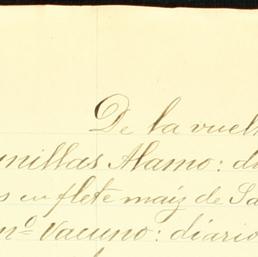 De la vuelt
nillas Alamo: di
s en flete maíz de Sa
nº Vacuno: diario